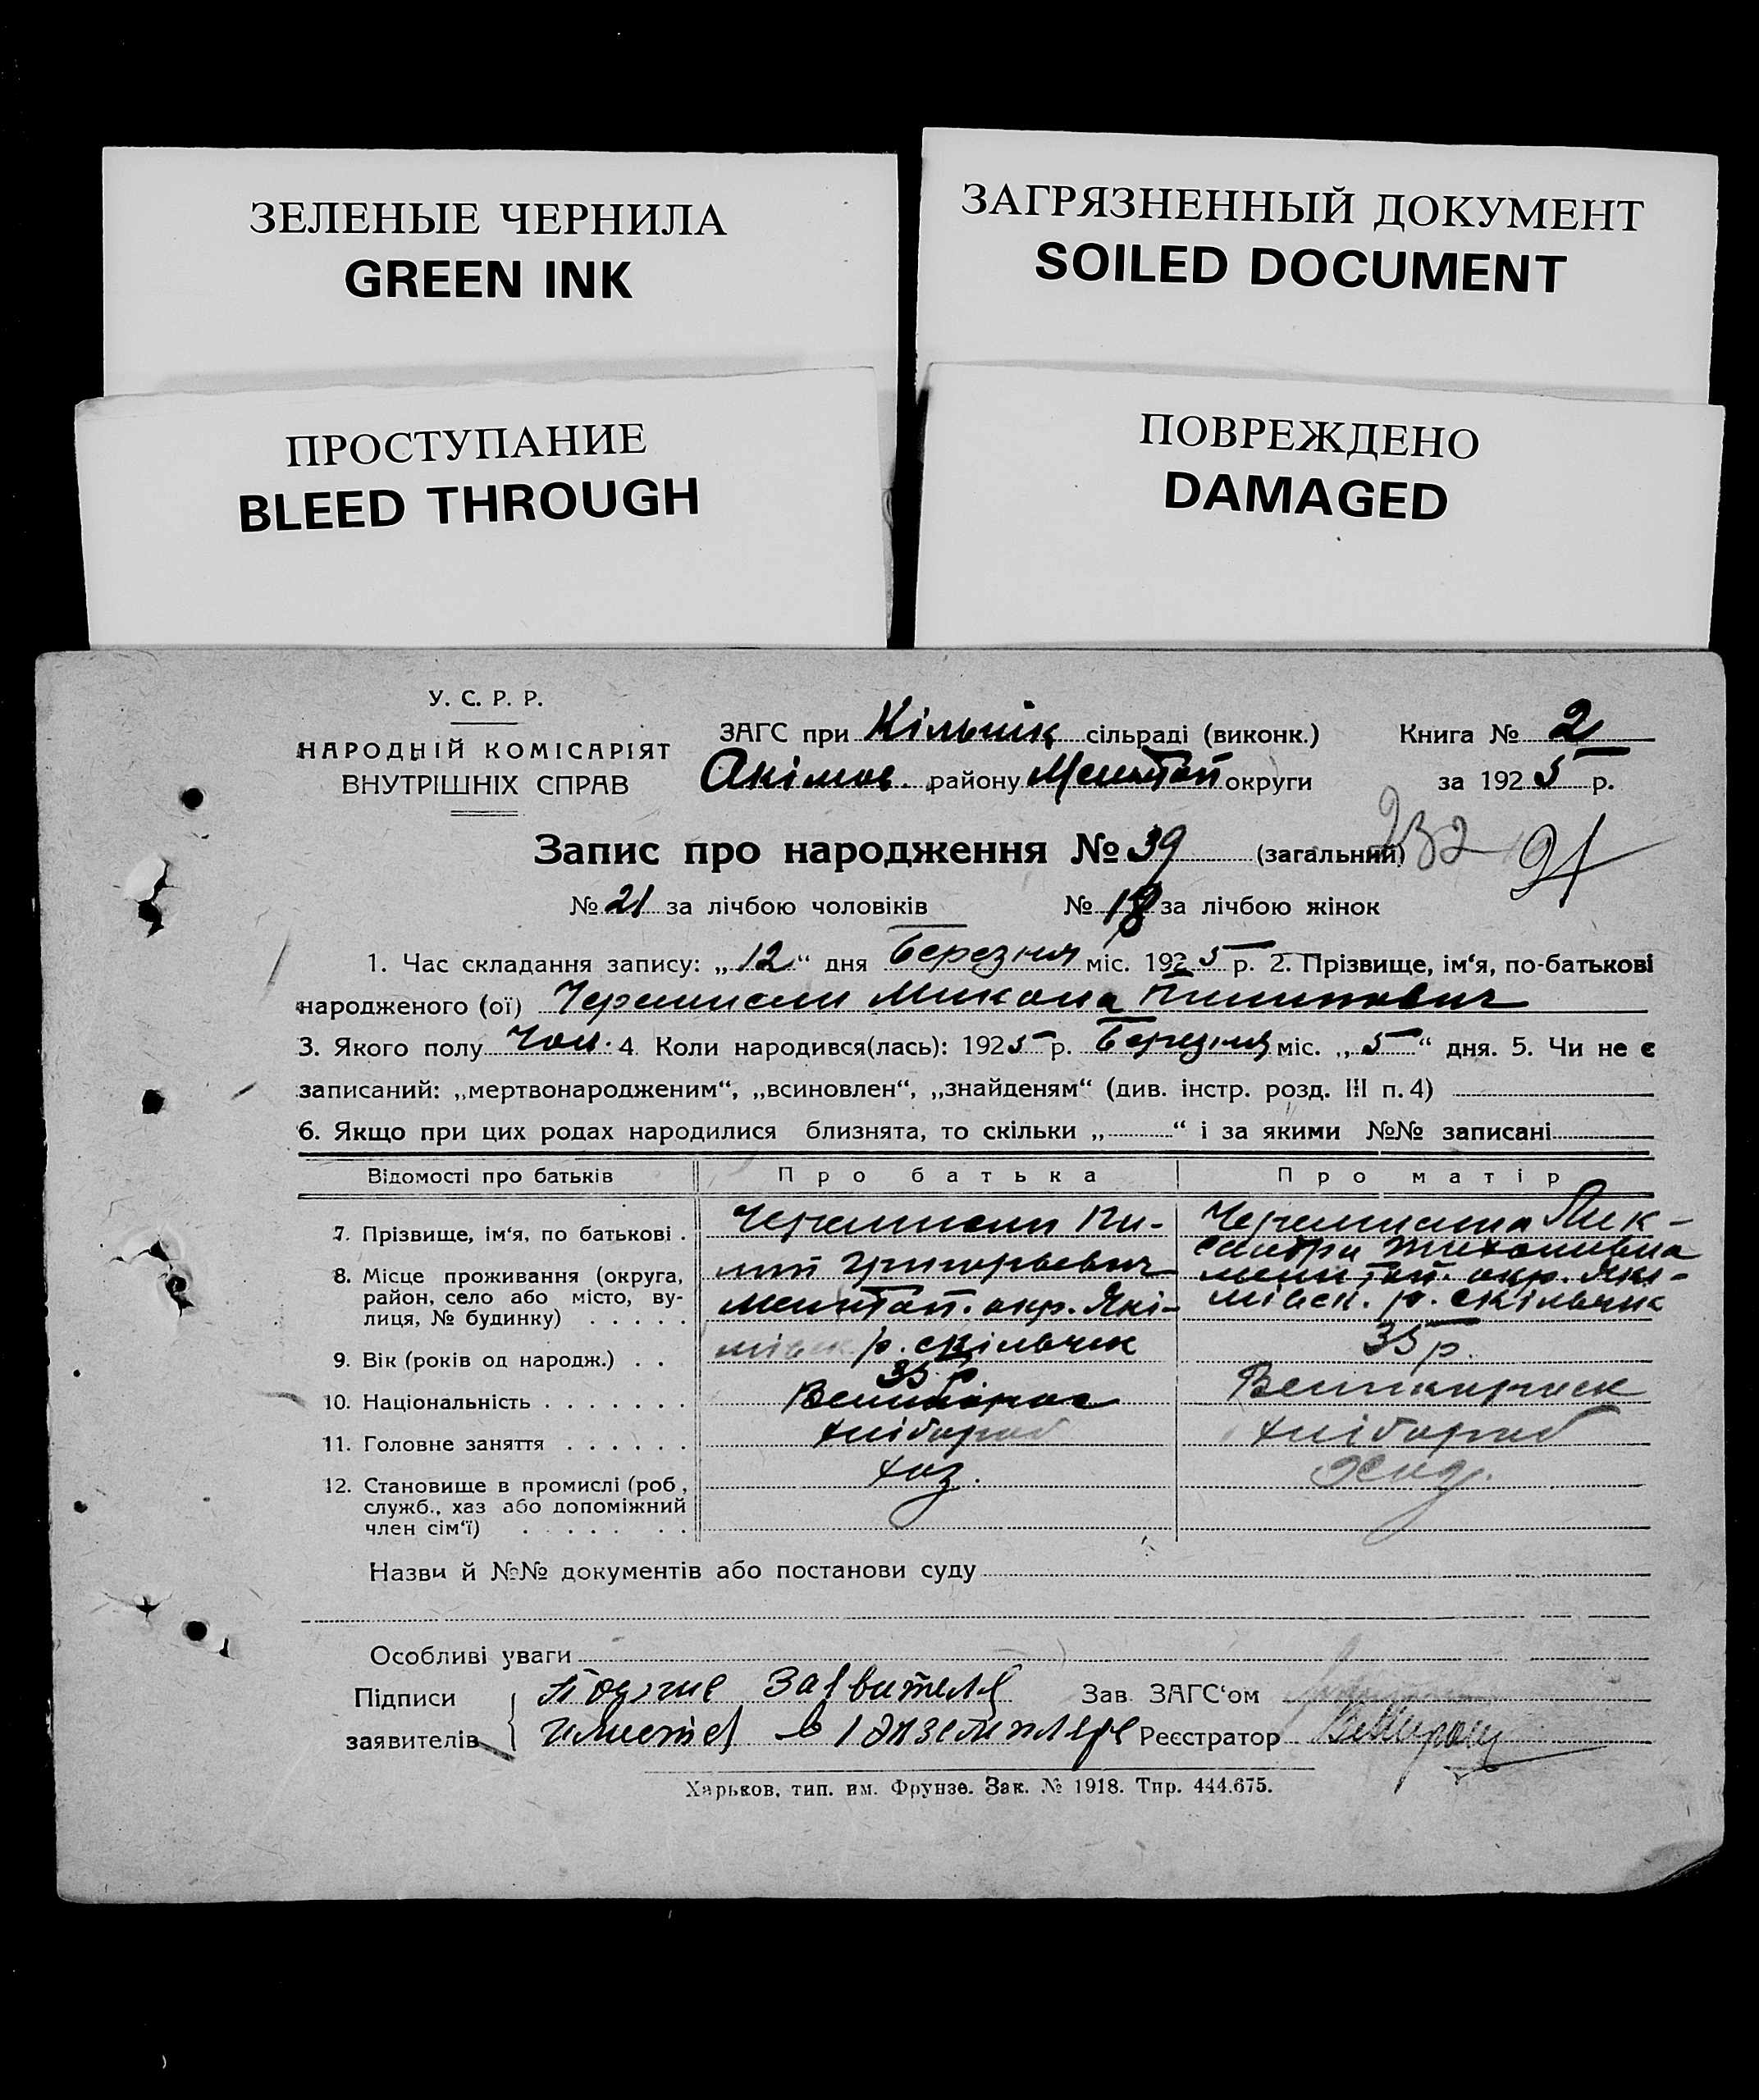 ЗЕЛЕНЫЕ ЧЕРНИЛА
GREEN INK
ЗАГРЯЗНЕННЫЙ ДОКУМЕНТ
SOILED DOCUMENT
ПРОСТУПАНИЕ
BLEED THROUGH
ПОВРЕЖДЕНО
DAMAGED
У. С. Р. Р.
НАРОДНІЙ КОМІСАРІЯТ
ВНУТРІШНІХ СПРАВ
ЗАГС при сільраді (виконк.)
Акімов. району Мелітоп округи
Книга № 2
за 1925 р.
Запис про народження № 39 (загальний) 232 91
№ 21 за лічбою чоловіків № за лічбою жінок
1. Час складання запису: „12“ дня Березня міс. 1925 р. 2. Прізвище, ім‘я, по-батькові
народженого (ої) Микола Пилипович
3. Якого полу Чол. 4. Коли народився(лась): 1925 р. Березня міс. „5“ дня. 5. Чи не є
записаний: „мертвонародженим“, „всиновлен“, „знайденям“ (див. інстр. розд. III п. 4)
6. Якщо при цих родах народилися близнята, то скільки „ “ і за якими №№ записані
Відомості про батьків Про батька Про матір
7. Прізвище, ім‘я, по батькові .
8. Місце проживання (округа,
район, село або місто, ву-
лиця, № будинку) . . . . .
9. Вік (років од народж.) . .
10. Національність . . . . . . .
11. Головне заняття . . . . . .
12. Становище в промислі (роб.,
служб., хаз або допоміжний
член сім‘ї) . . . . . . .
Пи-
лип Григорьевич
Мелітоп. окр. Які-
мівск р. с Кільчик
35 р
Великорос
хлібороб
хаз.
Лик-
Мелітоп. окр. Які-
мівск. р. с Кільчик
35 р.
Великороск
хлібороб
Назви й №№ документів або постанови суду
Особливі уваги
Підписи
заявителів
Подпис заявителя
имеется в 1 экземпляре
Зав. ЗАГС‘ом
Реєстратор
Харьков, тип. им. Фрунзе. Зак. № 1918. Тир. 444.675.